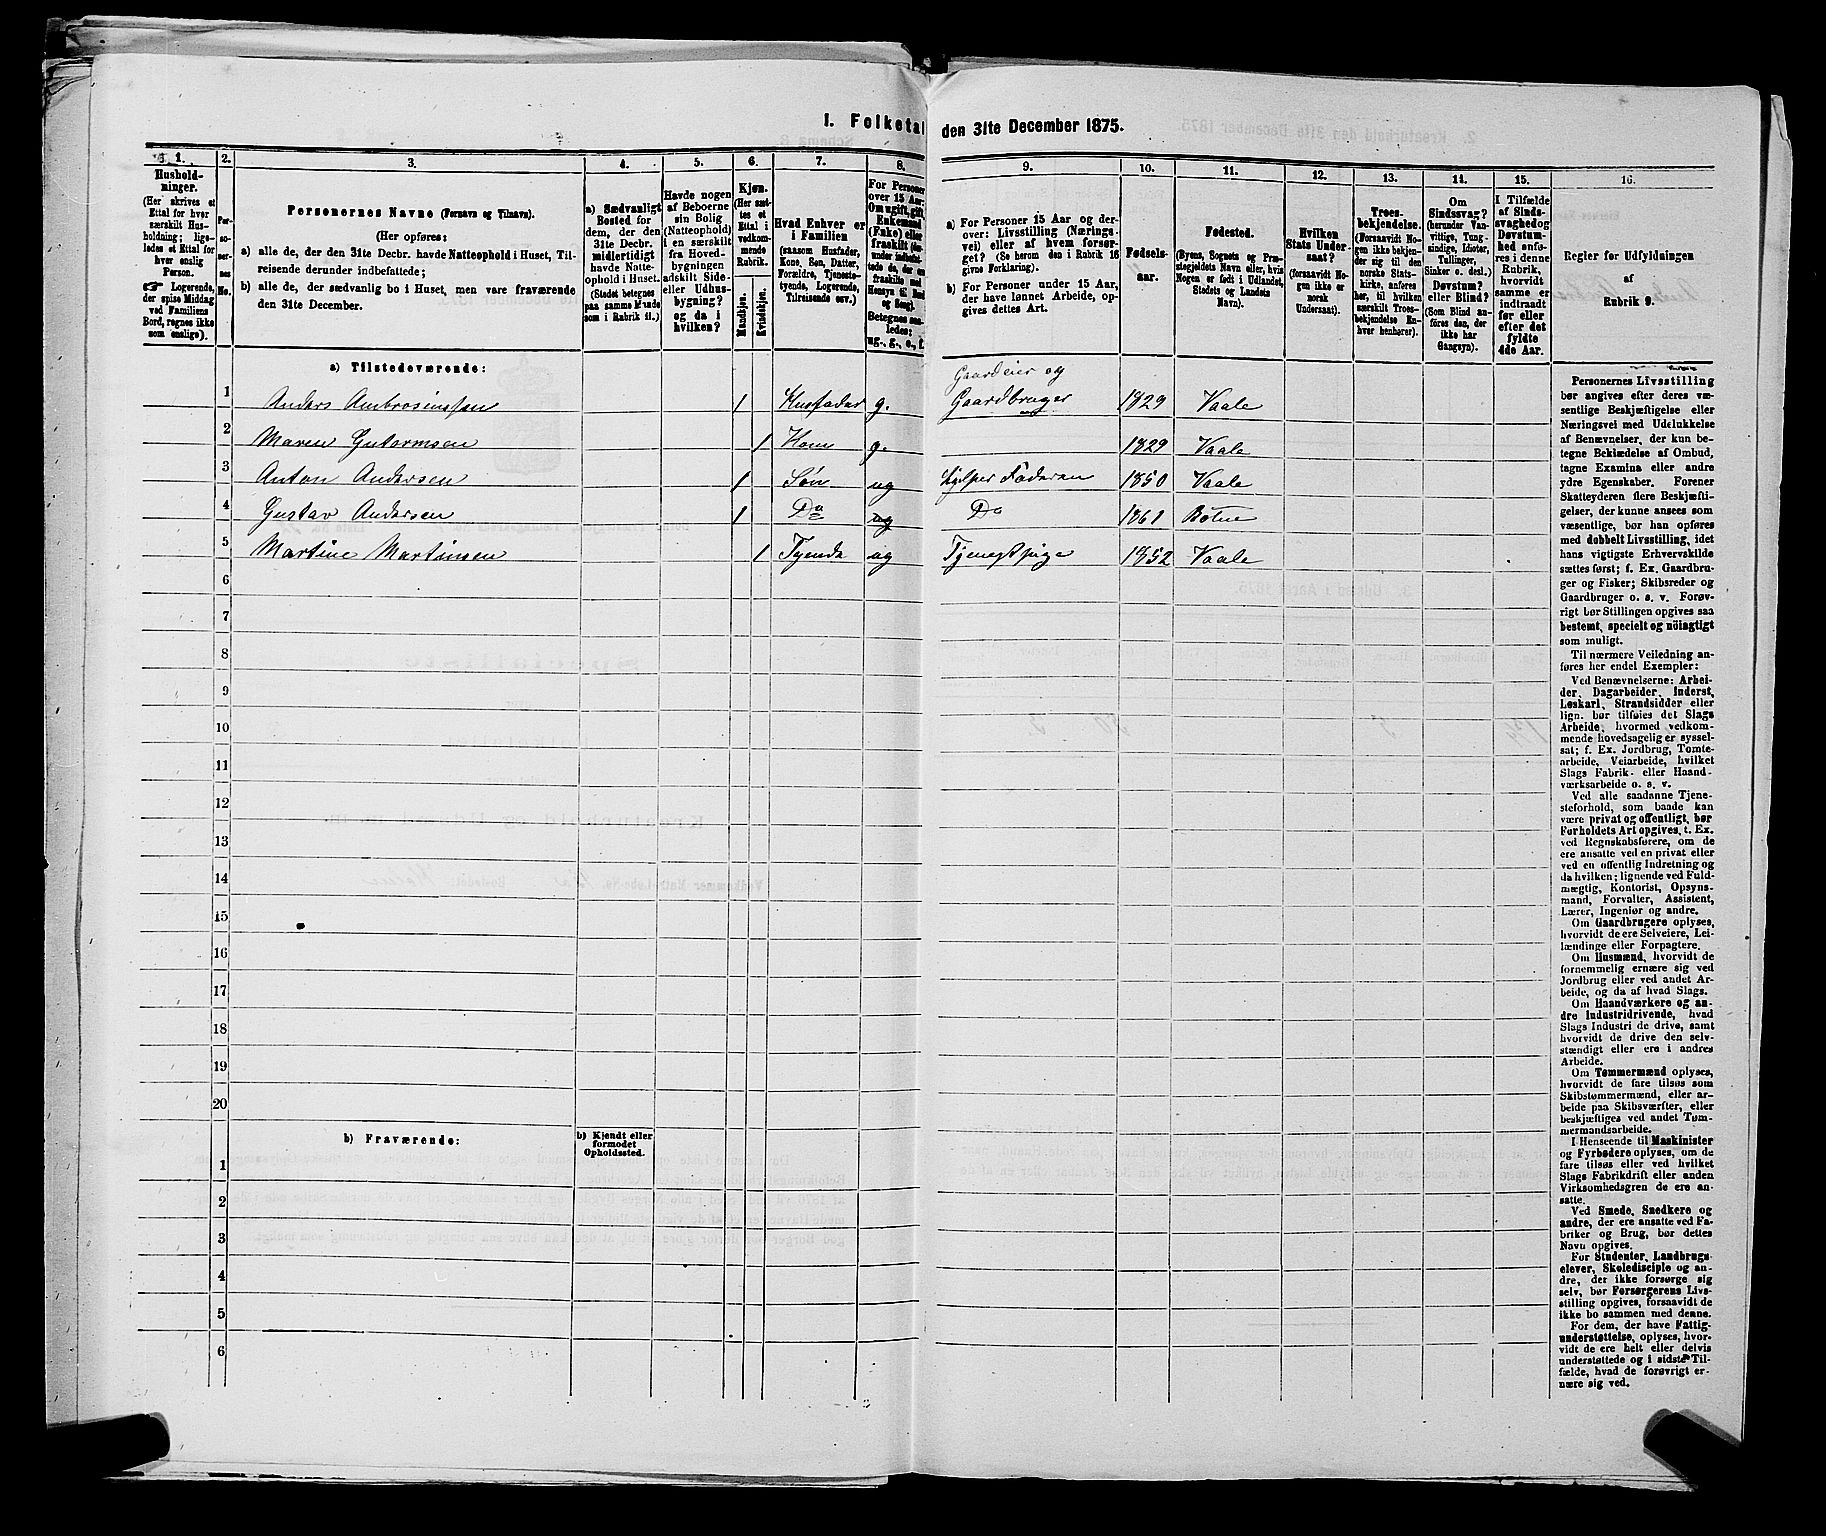 I. Folketal den 31te December 1875.
1.
2.
3.
4.
5.
6.
7.
8.
9.
10.
11.
12.
13.
14.
15.
16.
Husholdninger.
(Her skrives et
Ettal for hver
særskilt Husholdning;
ligeledes et Ettal for
hver enslig
Person.
☞ Logerende,
der spise Middag
ved Familiens
Bord, regnes ikke
som enslige).
Personernes No.
Personernes Navne (Fornavn og Tilnavn).
(Her opføres:
a) alle de, der den 31te Decbr. havde Natteophold i Huset, Tilreisende derunder indbefattede;
b) alle de, der sædvanlig bo i Huset, men vare fraværende
den 31te December.
a) Sædvanligt
Bosted for
dem, der den
31te Decbr.
midlertidigt
havde Natteophold
i Huset.
(Stedet betegnes
paa samme Maade
som i Rubrik 11.)
Havde nogen
af Beboerne
sin Bolig
(Natteophold)
i en særskilt
fra Hovedbygningen
afskilt Side- eller
Udhusbygning?
og da i
hvilken?
Kjøn.
(Her sættes et
Ettal i
vedkommende
Rubrik.
Mandkjøn.
Kvindekjøn.
Hvad Enhver er
i Familien
(saasom Husfader,
Kone, Søn, Datter,
Forældre, Tjenestetyende,
Logerende,
Tilreisende osv.)
For Personer
over 15 Aar:
Om ugift, gift,
Enkemand
(Enke) eller
fraskilt
Betegnes saaledes:
ug., g., e., f.
a) For Personer 15 Aar og derover:
Livsstilling (Næringsvei)
eller af hvem forsørget?
(Se herom den i Rubrik 16
givne Forklaring).
b) For Personer under 15 Aar,
der have lønnet Arbeide, opgives
dettes Art.
Fødselsaar.
Fødested.
(Byens, Sognets og Præstegjeldets
Navn eller, hvis
Nogen er født i Udlandet,
Stedets og Landets
Navn).
Hvilken
Stats Undersaat?
(forsaavidt Nogen
ikke er
norsk
Undersaat).
Troesbekjendelse.
(Forsaavidt Nogen
ikke bekjender
sig til den
norske Statskirke,
anføres
her, til hvilken
særskilt Troesbekjendelse
Enhver henhører).
Om
Sindssvag?
(herunder Vanvittige,
Tungsindige,
Idioter,
Tullinger,
Sinker o. desl.)
Døvstum?
eller Blind?
(Som Blind anføres
den, der
ikke har
Gangsyn).
I Tilfælde
af Sindssvaghed og
Døvstumhed
anføres
i denne
Rubrik,
hvorvidt
samme er
indtraadt
før eller
efter det
fyldte
4de Aar.
Regler for Udfyldningen
af
Rubrik 9.
a) Tilstedeværende:
Gaardeier og
1 Anders Ambrosiussen 1 Husfader g. Gaardbruger 1829 Vaale
2 Maren Gutormsen 1 Kone g. 1829 Vaale
3 Anton Andersen 1 Søn ug Hjelper Faderen 1850 Vaale
4 Gustav Andersen 1 Do ug Do 1861 Botne
5 Martine Martinsen 1 Tyende ug Tjenestpige 1852 Vaale
6
7
8
9
10
11
12
13
14
15
16
17
18
19
20
b) Fraværende:
b) Kjendt eller
formodet
Opholdssted.
1
2
3
4
5
6
Personernes Livsstilling
bør angives efter deres væsentlige
Beskjæftigelse eller
Næringsvei med Udelukkelse
af Benævnelser, der kun betegne
Beklædelse af Ombud,
tagne Examina eller andre
ydre Egenskaber. Forener
Skatteyderen flere Beskjæftigelser,
der kunne ansees som
væsentlige, bør han opføres
med dobbelt Livsstilling, idet
hans vigtigste Erhvervskilde
sættes først; f. Ex. Gaardbruger
og Fisker; Skibsreder og
Gaardbruger o. s. v. Forøvrigt
bør Stillingen opgives saa
bestemt, specielt og nöiagtigt
som muligt.
Til nærmere Veiledning anføres
her endel Exempler:
Ved Benævnelserne: Arbeider,
Dagarbeider, Inderst,
Løskarl, Strandsidder eller
lign. bør tilføies det Slags
Arbeide, hvormed vedkommende
hovedsagelig er sysselsat;
f. Ex. Jordbrug, Tomtearbeide,
Veiarbeide, hvilket
Slags Fabrik- eller Haandværksarbeide
o. s. v.
Ved alle saadanne Tjenesteforhold,
som baade kan
være privat og offentligt, bør
Forholdets Art opgives, t. Ex.
ved Regnskabsførere, om de
ere ansatte ved en privat eller
ved en offentlig Indretning og
da hvilken; lignende ved Fuldmægtig,
Kontorist, Opsynsmand,
Forvalter, Assistent,
Lærer, Ingeniør og andre.
Om Gaardbrugere oplyses,
hvorvidt de ere Selveiere, Leilændinge
eller Forpagtere.
Om Husmænd, hvorvidt de
fornemmelig ernære sig ved
Jordbrug eller ved andet Arbeide,
og da af hvad Slags.
Om Haandværkere og andre
Industridrivende, hvad
Slags Industri de drive, samt
hvorvidt de drive den selvstændigt
eller ere i andres
Arbeide.
Om Tømmermænd oplyses,
hvorvidt de fare tilsøs som
Skibstømmermænd, eller arbeide
paa Skibsværfter, eller
beskjæftiges ved andet Tømmermandsarbeide.
I Henseende til Maskinister
og Fyrbødere oplyses, om de
fare tilsøs eller ved hvilket
Slags Fabrikdrift eller anden
Virksomhedsgren de ere ansatte.
Ved Smede, Snedkere og
andre, der ere ansatte ved Fabriker
og Brug, bør dettes
Navn opgives.
For Studenter, Landbrugselever,
Skoledisciple og andre,
der ikke forsørge sig
selv, bør Forsørgerens Livsstilling
opgives, forsaavidt de
ikke bo sammen med denne.
For dem, der have Fattigunderstøttelse,
oplyses, hvorvidt
de ere helt eller delvis
understøttede og i sidste Tilfælde,
hvad de forøvrigt ernære
sig ved.